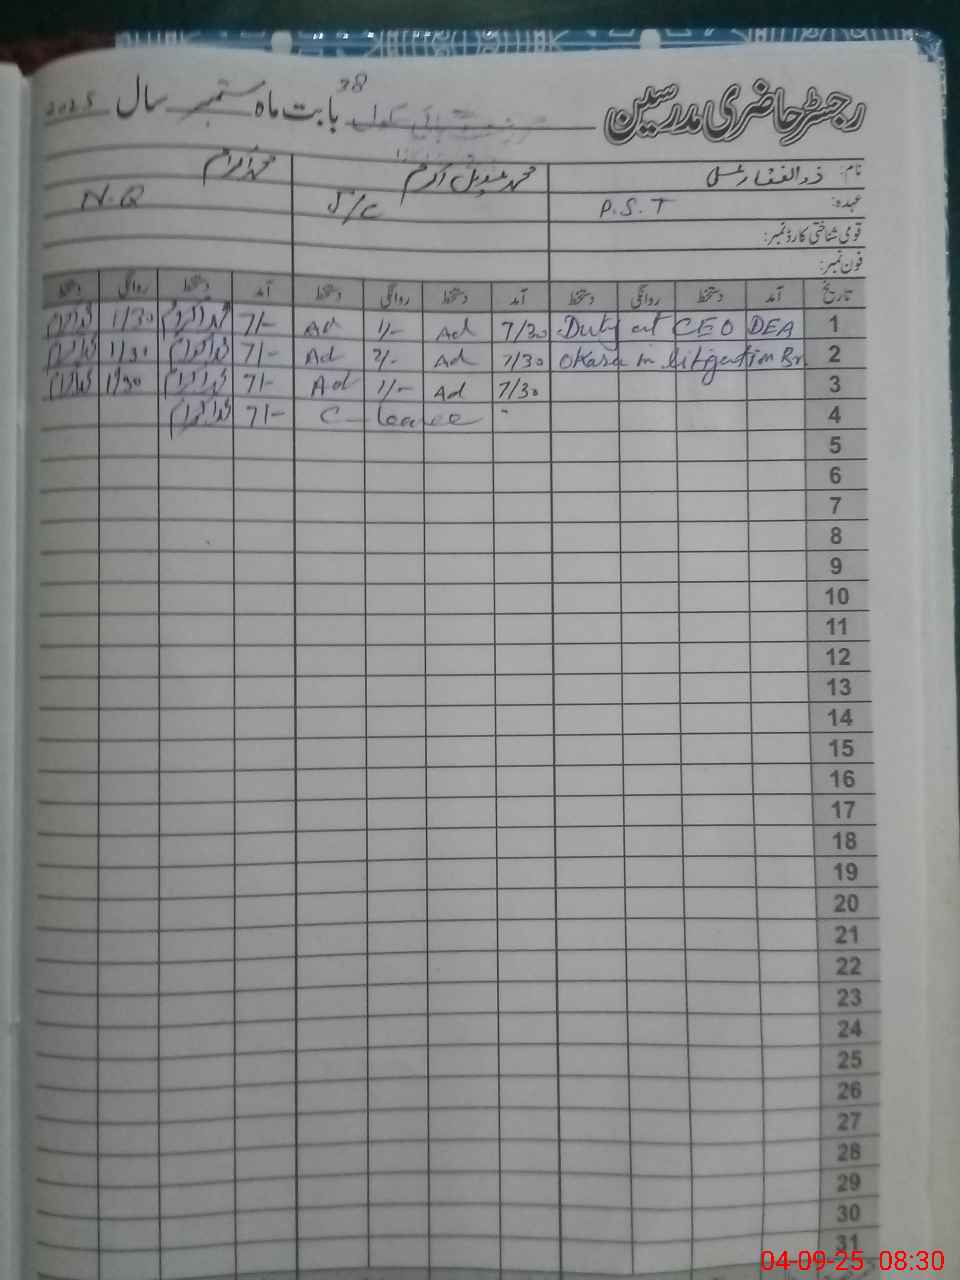 رجسٹر حاضری مدرسین بابت ماہ ستمبر سال 2025
38
نام: ذوالفقار علی محمد عدیل اکرم محمد اکرام
عہدہ: P.S.T J/C N.Q
قومی شناختی کارڈ نمبر:
فون نمبر:
تاریخ آمد دستخط روانگی دستخط آمد دستخط روانگی دستخط آمد دستخط روانگی دستخط
1 Duty at CEO DEA 7/30 Ad 1/- Ad 7/- محمد اکرام 1/30 محمد اکرام
2 Okara in Litigation Br 7/30 Ad 1/- Ad 7/- محمد اکرام 1/30 محمد اکرام
3 7/30 Ad 1/- Ad 7/- محمد اکرام 1/30 محمد اکرام
4 C-leave 7/- محمد اکرام
5
6
7
8
9
10
11
12
13
14
15
16
17
18
19
20
21
22
23
24
25
26
27
28
29
30
31
04-09-25 08:30